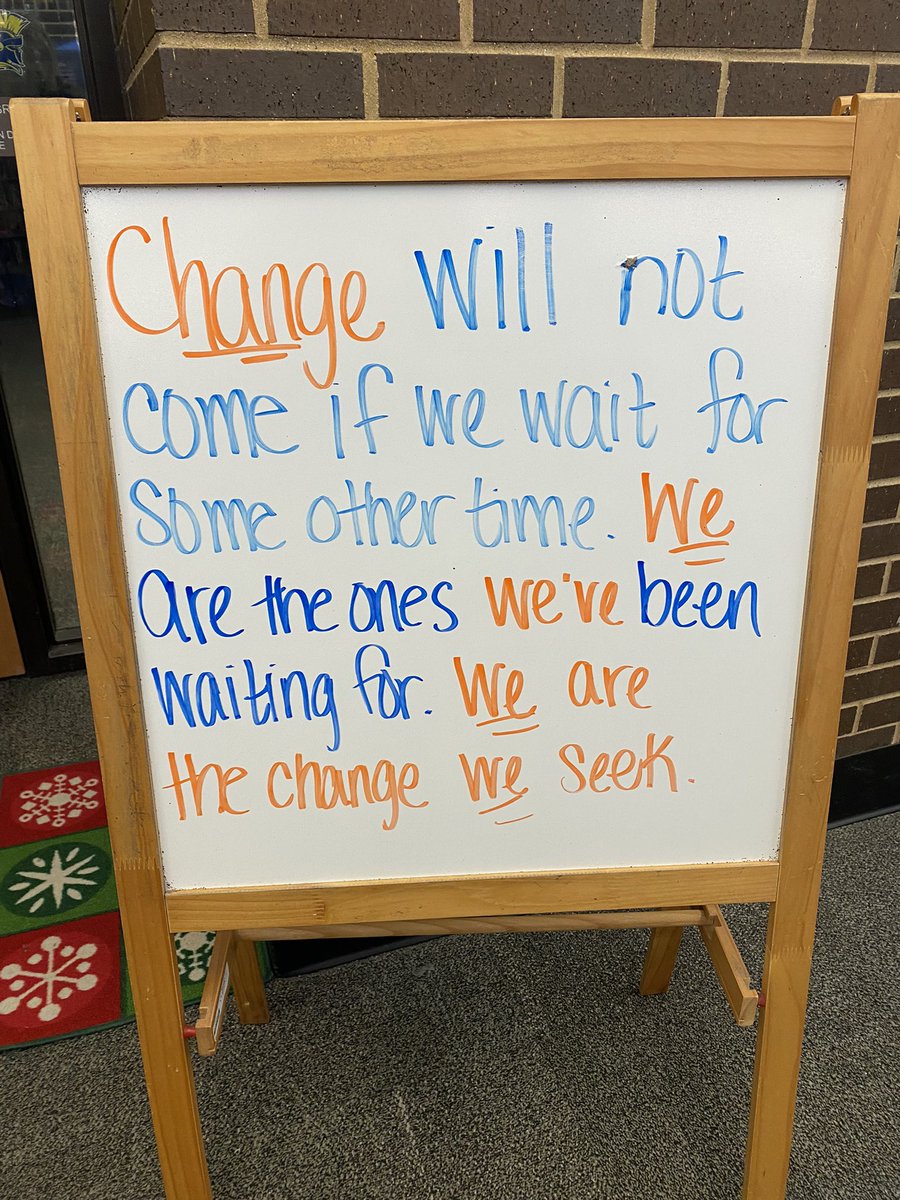 Change will not
come if we wait for
some other time. We
are the ones we've been
waiting for. We are
the change we seek.